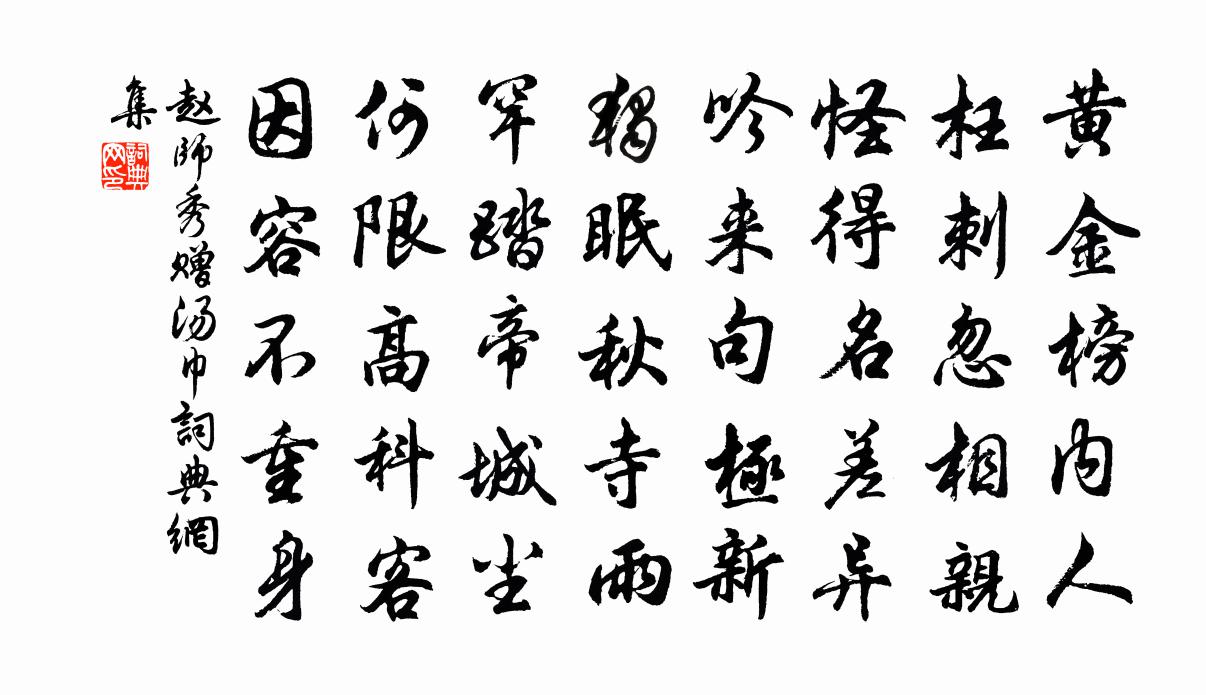 黄金榜内人
枉刺忽相親
怪得名差异
吟来句極新
獨眠秋寺雨
罕踏帝城尘
何限高科客
因容不重身
赵師秀赠汤巾詞典網
集
詞典
网印